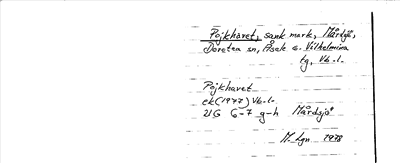 Pojkhavet, sank mark, Mårdsjö,
Dorotea sn, Åsele o. Vilhelmina
tg, Vb. l.
Pojkhavet
ek (1977) Vb. l.
22G 6-7 g-h Mårdsjö
M. Lgn. 1978